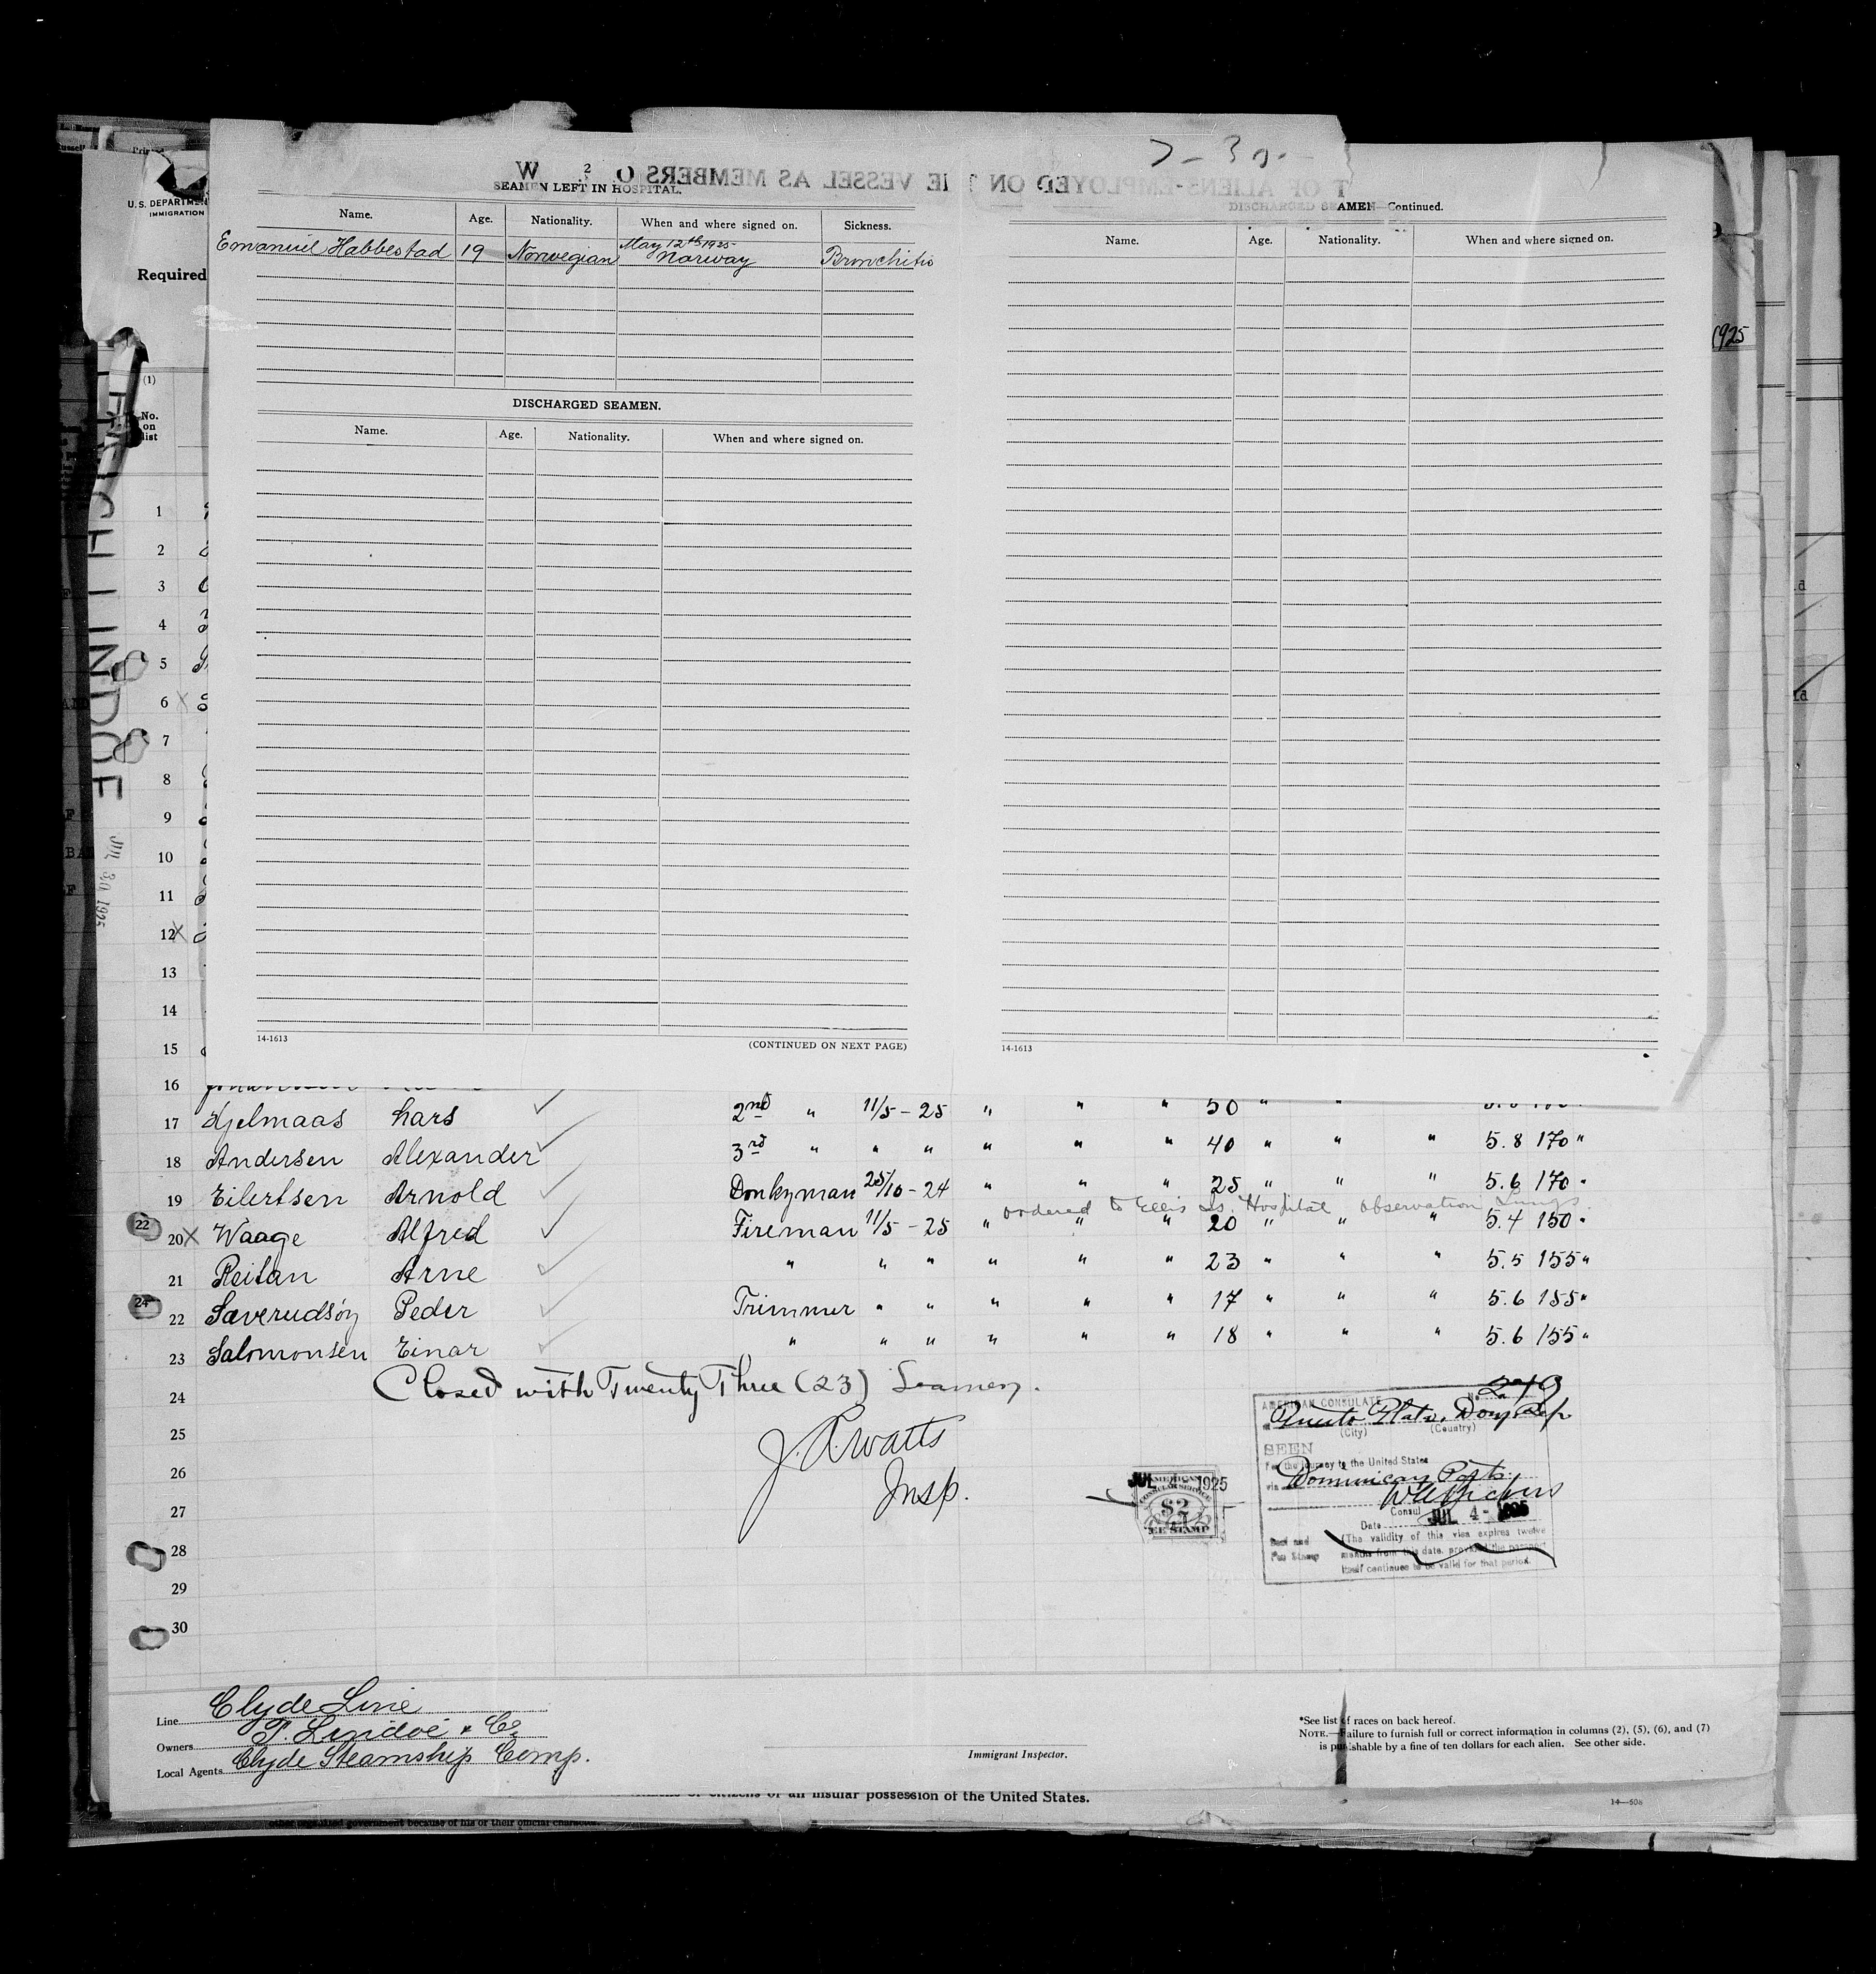 SEAMEN LEFT IN HOSPITAL.
Name. Age. Nationality. When and where signed on. Sickness.
Emanuel Habbestad 19 Norwegian May 12th 1925 Norway Bronchitis
DISCHARGED SEAMEN.
Name. Age. Nationality. When and where signed on.
14-1613
(CONTINUED ON NEXT PAGE)
DISCHARGED SEAMEN—Continued.
Name. Age. Nationality. When and where signed on.
14-1613
U.S. DEPARTMEN
IMMIGRATION
Required
1925
(1)
No.
on
list
LINDÖE
JUL 30 1925
1
2
3
4
5
6 X
7
8
9
10
11
12 X
13
14
15
16
17 Hjelmaas Lars ✓ 2nd " 11/5 - 25 " " " 50 " "
18 Andersen Alexander ✓ 3rd " " " " " " 40 " " " 5.8 170 "
19 Eilertsen Arnold ✓ Donkyman 25/10 - 24 " " " 25 " " " 5.6 170 "
ordered to Ellis Is. Hospital observation Lungs
22 20 X Waage Alfred ✓ Fireman 11/5 - 25 " " " 20 " " " 5.4 150 "
21 Reitan Arne ✓ " " " " " " 23 " " " 5.5 155 "
24 22 Saverudsöy Peder ✓ Trimmer " " " " " 17 " " " 5.6 155 "
23 Salomonsen Einar ✓ " " " " " " 18 " " " 5.6 155 "
24 Closed with Twenty Three (23) Seamen.
25 J. A. Watts
26 Insp.
27
28
29
30
AMERICAN CONSULATE
No. 249
Puerto Plata, Dom. Rep
(City) (Country)
SEEN
For the journey to the United States
via Dominican Ports
Consul
Date JUL 4 - 1925
(The validity of this visa expires twelve
months from this date, provided the passport
itself continues to be valid for that period.
JUL 4 - 1925
AMERICAN
CONSULAR SERVICE
$2
FEE STAMP
Line Clyde Line
Owners P. Lindöe & Co
Local Agents Clyde Steamship Comp.
Immigrant Inspector.
*See list of races on back hereof.
NOTE.—Failure to furnish full or correct information in columns (2), (5), (6), and (7)
is punishable by a fine of ten dollars for each alien. See other side.
citizens of an insular possession of the United States.
14—508
other organized government because of his or their official character